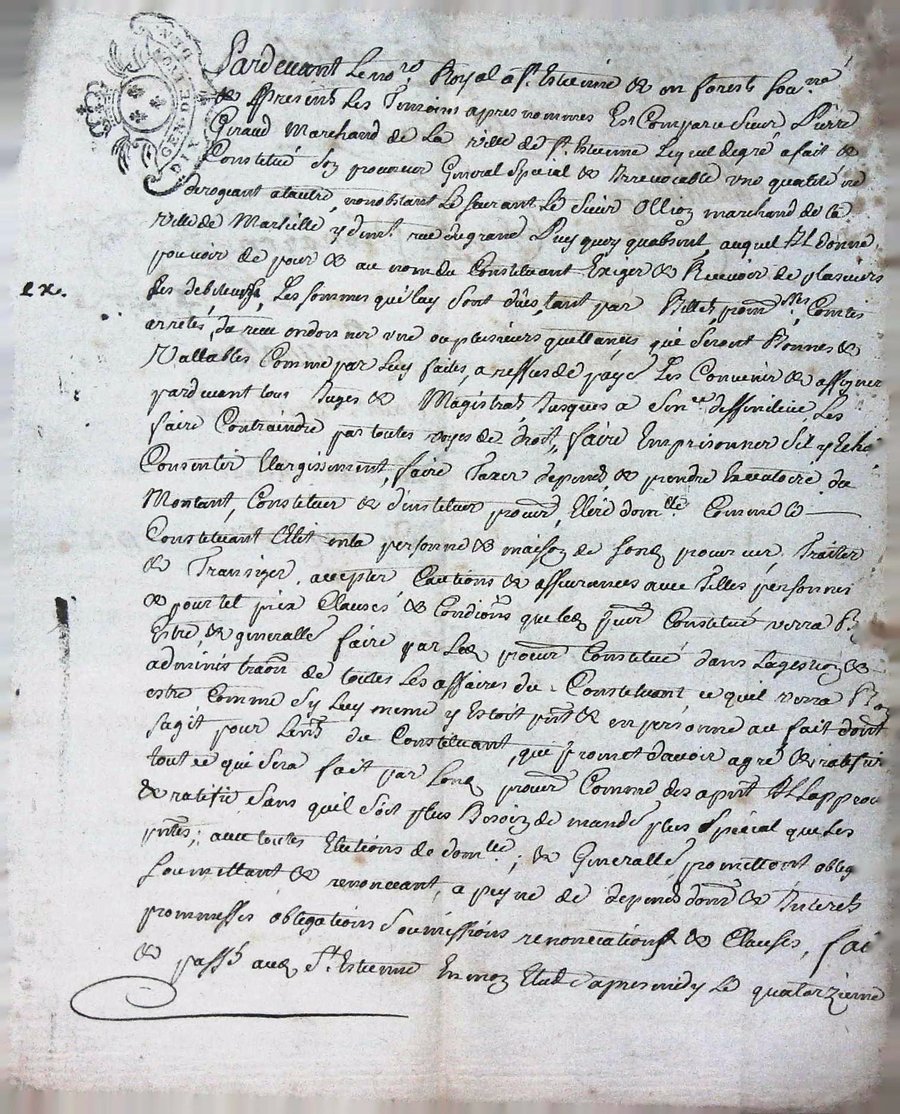 GEN. DE LION DIX DEN
Pardevant Le no.re Royal a S.t Estienne & en forests sous.né
& Presents Les Temoins apres nommes Est Comparu Sieur Pierre
Giraud Marchand de La Ville de S.t Estienne Lequel de gré a fait &
Constitué son procureur General Special & Irrevocable une qualité ne
derogeant a l'autre, nonobstant Le Sieur Ollion marchand de la
Ville de Marseille y dem.t rue du grand Puy quoy qu'absent, auquel Il donne
pouvoir de pour & au nom du Constituant Exiger & Recevoir de plusieurs
ses debiteurs, Les sommes qui luy sont dües, tant par Billets prom.sses, Comtes
arretés, du receu en donner une ou plusieurs quittances qui seront Bonnes &
Vallables Comme par Luy faites, a reffus de payé Les Convenir & assigner
pardevant tous Juges & Magistrats Jusques a Sen.ce deffinitive Les
faire Contraindre par toutes voyes de droit, faire Emprisonner s'il y Echoi
Consentir Elargissement, faire Taxer depens, & prendre Executoire du
Montant, Constituer & d'instituer procur.r, Elire dom.lle Comme le
Constituant Elit en la personne & maison de sond. procureur, Traiter
& Transiger, accepter Cautions & assurances avec Telles personnes
& pour tel prix Clauses & Condi͠ons que led. p.cur Constitué verra B.n
Estre, & generallem.t faire par Led. procur Constitué dans La gestion &
administra͠on de toutes Les affaires du Constituant ce qu'il verra Bon
estre Comme s'y Luy meme y Estoit p.nt & en personne au fait dont
s'agit pour Le du Constituant, que promet d'avoir agreé & ratifier
tout ce qui sera fait par sond. procur Comme des a p.nt Il l'approu
& ratifie sans qu'il soit plus Besoin de mandé plus special que Les
p.ntes; avec toutes Elections de dom.lle; & Generallé promettent oblig
Soumettant & renonceant, a peyne de depens dom.s & Interets
prommesses obligations Soumissions renonciations & Clauses, fai
& passé aud. S.t Estienne En mon Etude apresmidy Le quatorzieme